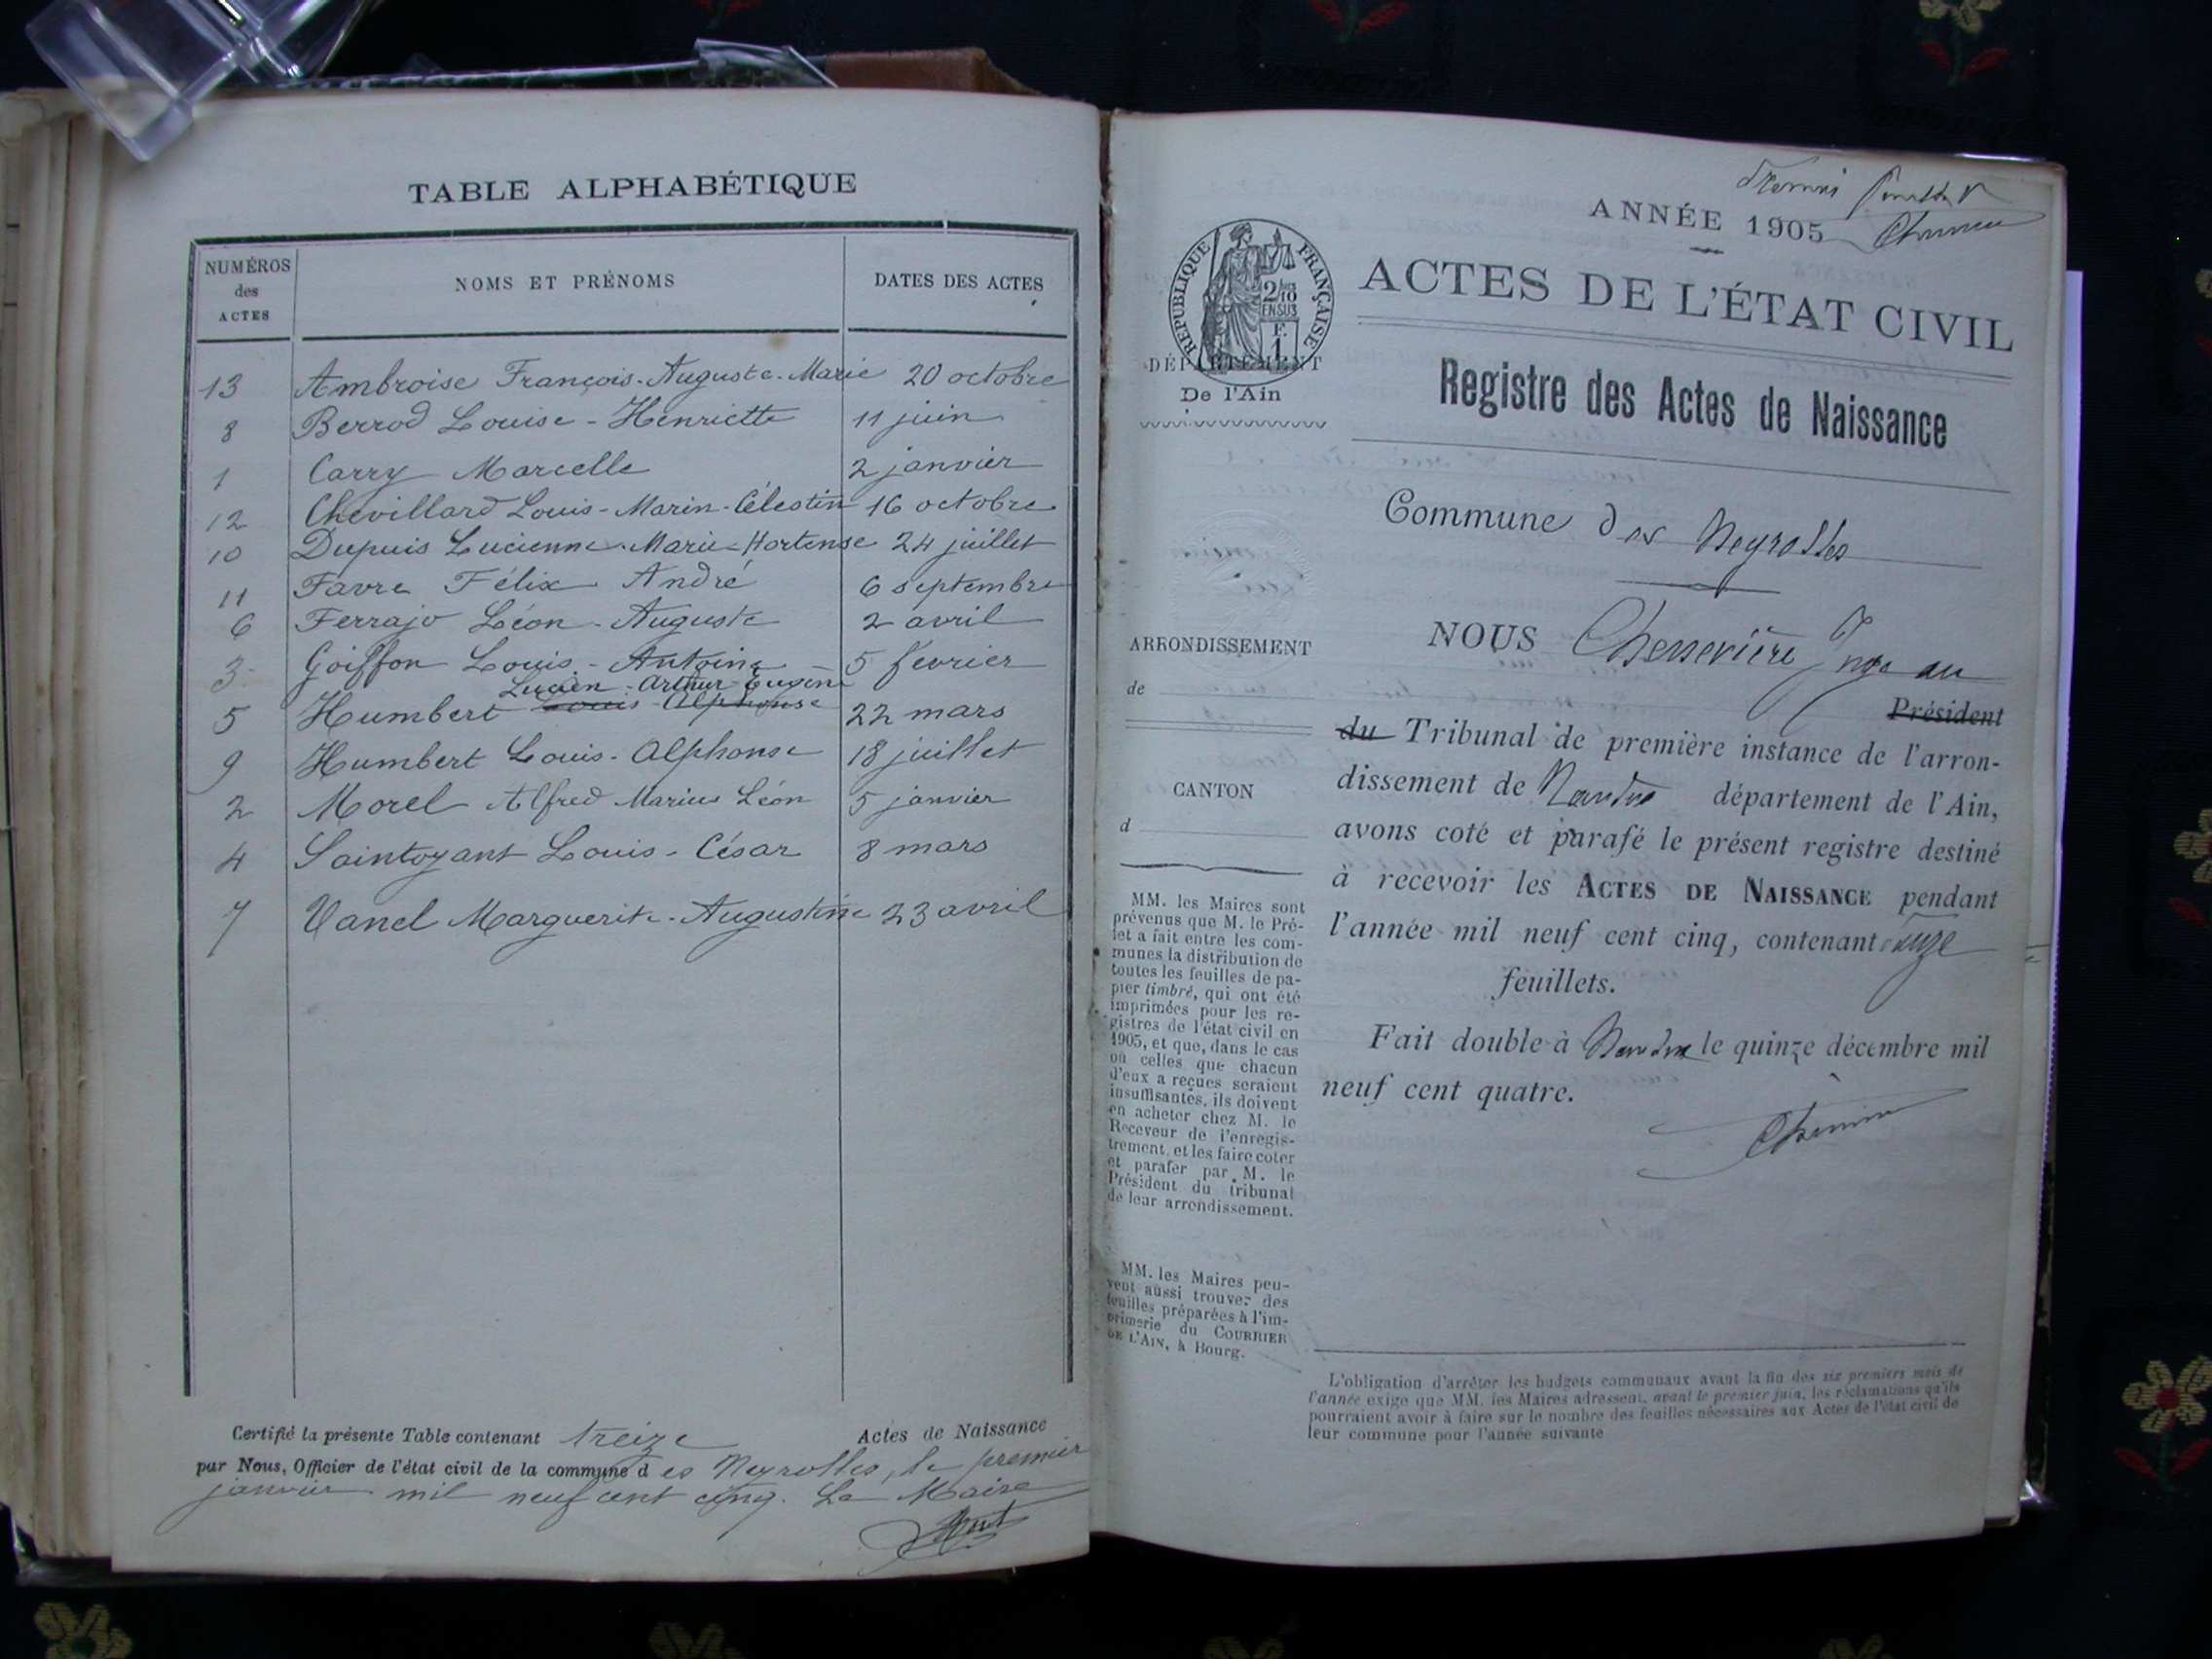 TABLE ALPHABÉTIQUE
NUMÉROS des ACTES
NOMS ET PRÉNOMS
DATES DES ACTES
13 Ambroise François-Auguste-Marie 20 octobre
8 Berrod Louise-Henriette 11 juin
1 Carry Marcelle 2 janvier
12 Chevillard Louis-Marin-Célestin 16 octobre
10 Dupuis Lucienne-Marie-Hortense 24 juillet
11 Favre Félix André 6 septembre
6 Ferrajo Léon-Auguste 2 avril
3 Goiffon Louis-Antoine 5 février
Lucien-Arthur-Eugène
5 Humbert Louis-Alphonse 22 mars
9 Humbert Louis-Alphonse 18 juillet
2 Morel Alfred Marius Léon 5 janvier
4 Saintoyant Louis-César 8 mars
7 Vanel Marguerite-Augustine 23 avril
Certifié la présente Table contenant treize Actes de Naissance
par Nous, Officier de l'état civil de la commune des Neyrolles, le premier
janvier mil neuf cent cinq. Le Maire
ANNÉE 1905
RÉPUBLIQUE FRANÇAISE
2/10
EN SUS
F.
1
ACTES DE L'ÉTAT CIVIL
DÉPARTEMENT
De l'Ain
Registre des Actes de Naissance
Commune des Neyrolles
ARRONDISSEMENT
de
CANTON
d
NOUS Juge au
Président
du Tribunal de première instance de l'arron-
dissement de Nantua département de l'Ain,
avons coté et parafé le présent registre destiné
à recevoir les ACTES DE NAISSANCE pendant
l'année mil neuf cent cinq, contenant
feuillets.
Fait double à Nantua le quinze décembre mil
neuf cent quatre.
MM. les Maires sont
prévenus que M. le Pré-
fet a fait entre les com-
munes la distribution de
toutes les feuilles de pa-
pier timbré, qui ont été
imprimées pour les re-
gistres de l'état civil en
1905, et que, dans le cas
où celles que chacun
d'eux a reçues seraient
insuffisantes, ils doivent
en acheter chez M. le
Receveur de l'enregis-
trement, et les faire coter
et parafer par M. le
Président du tribunal
de leur arrondissement.
MM. les Maires peu-
vent aussi trouver des
feuilles préparées à l'im-
primerie du COURRIER
DE L'AIN, à Bourg.
L'obligation d'arrêter les budgets communaux avant la fin des six premiers mois de
l'année exige que MM. les Maires adressent, avant le premier juin, les réclamations qu'ils
pourraient avoir à faire sur le nombre des feuilles nécessaires aux Actes de l'état civil de
leur commune pour l'année suivante